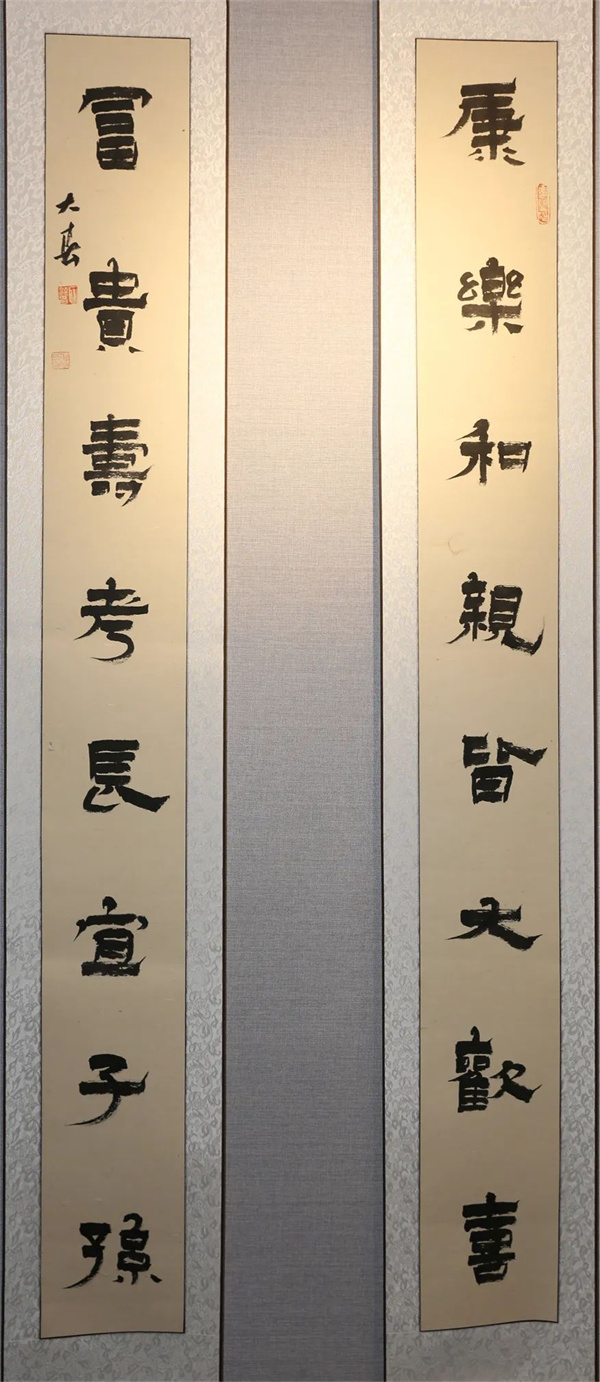 康樂和親皆大歡喜
富貴壽考長宜子孫
大春